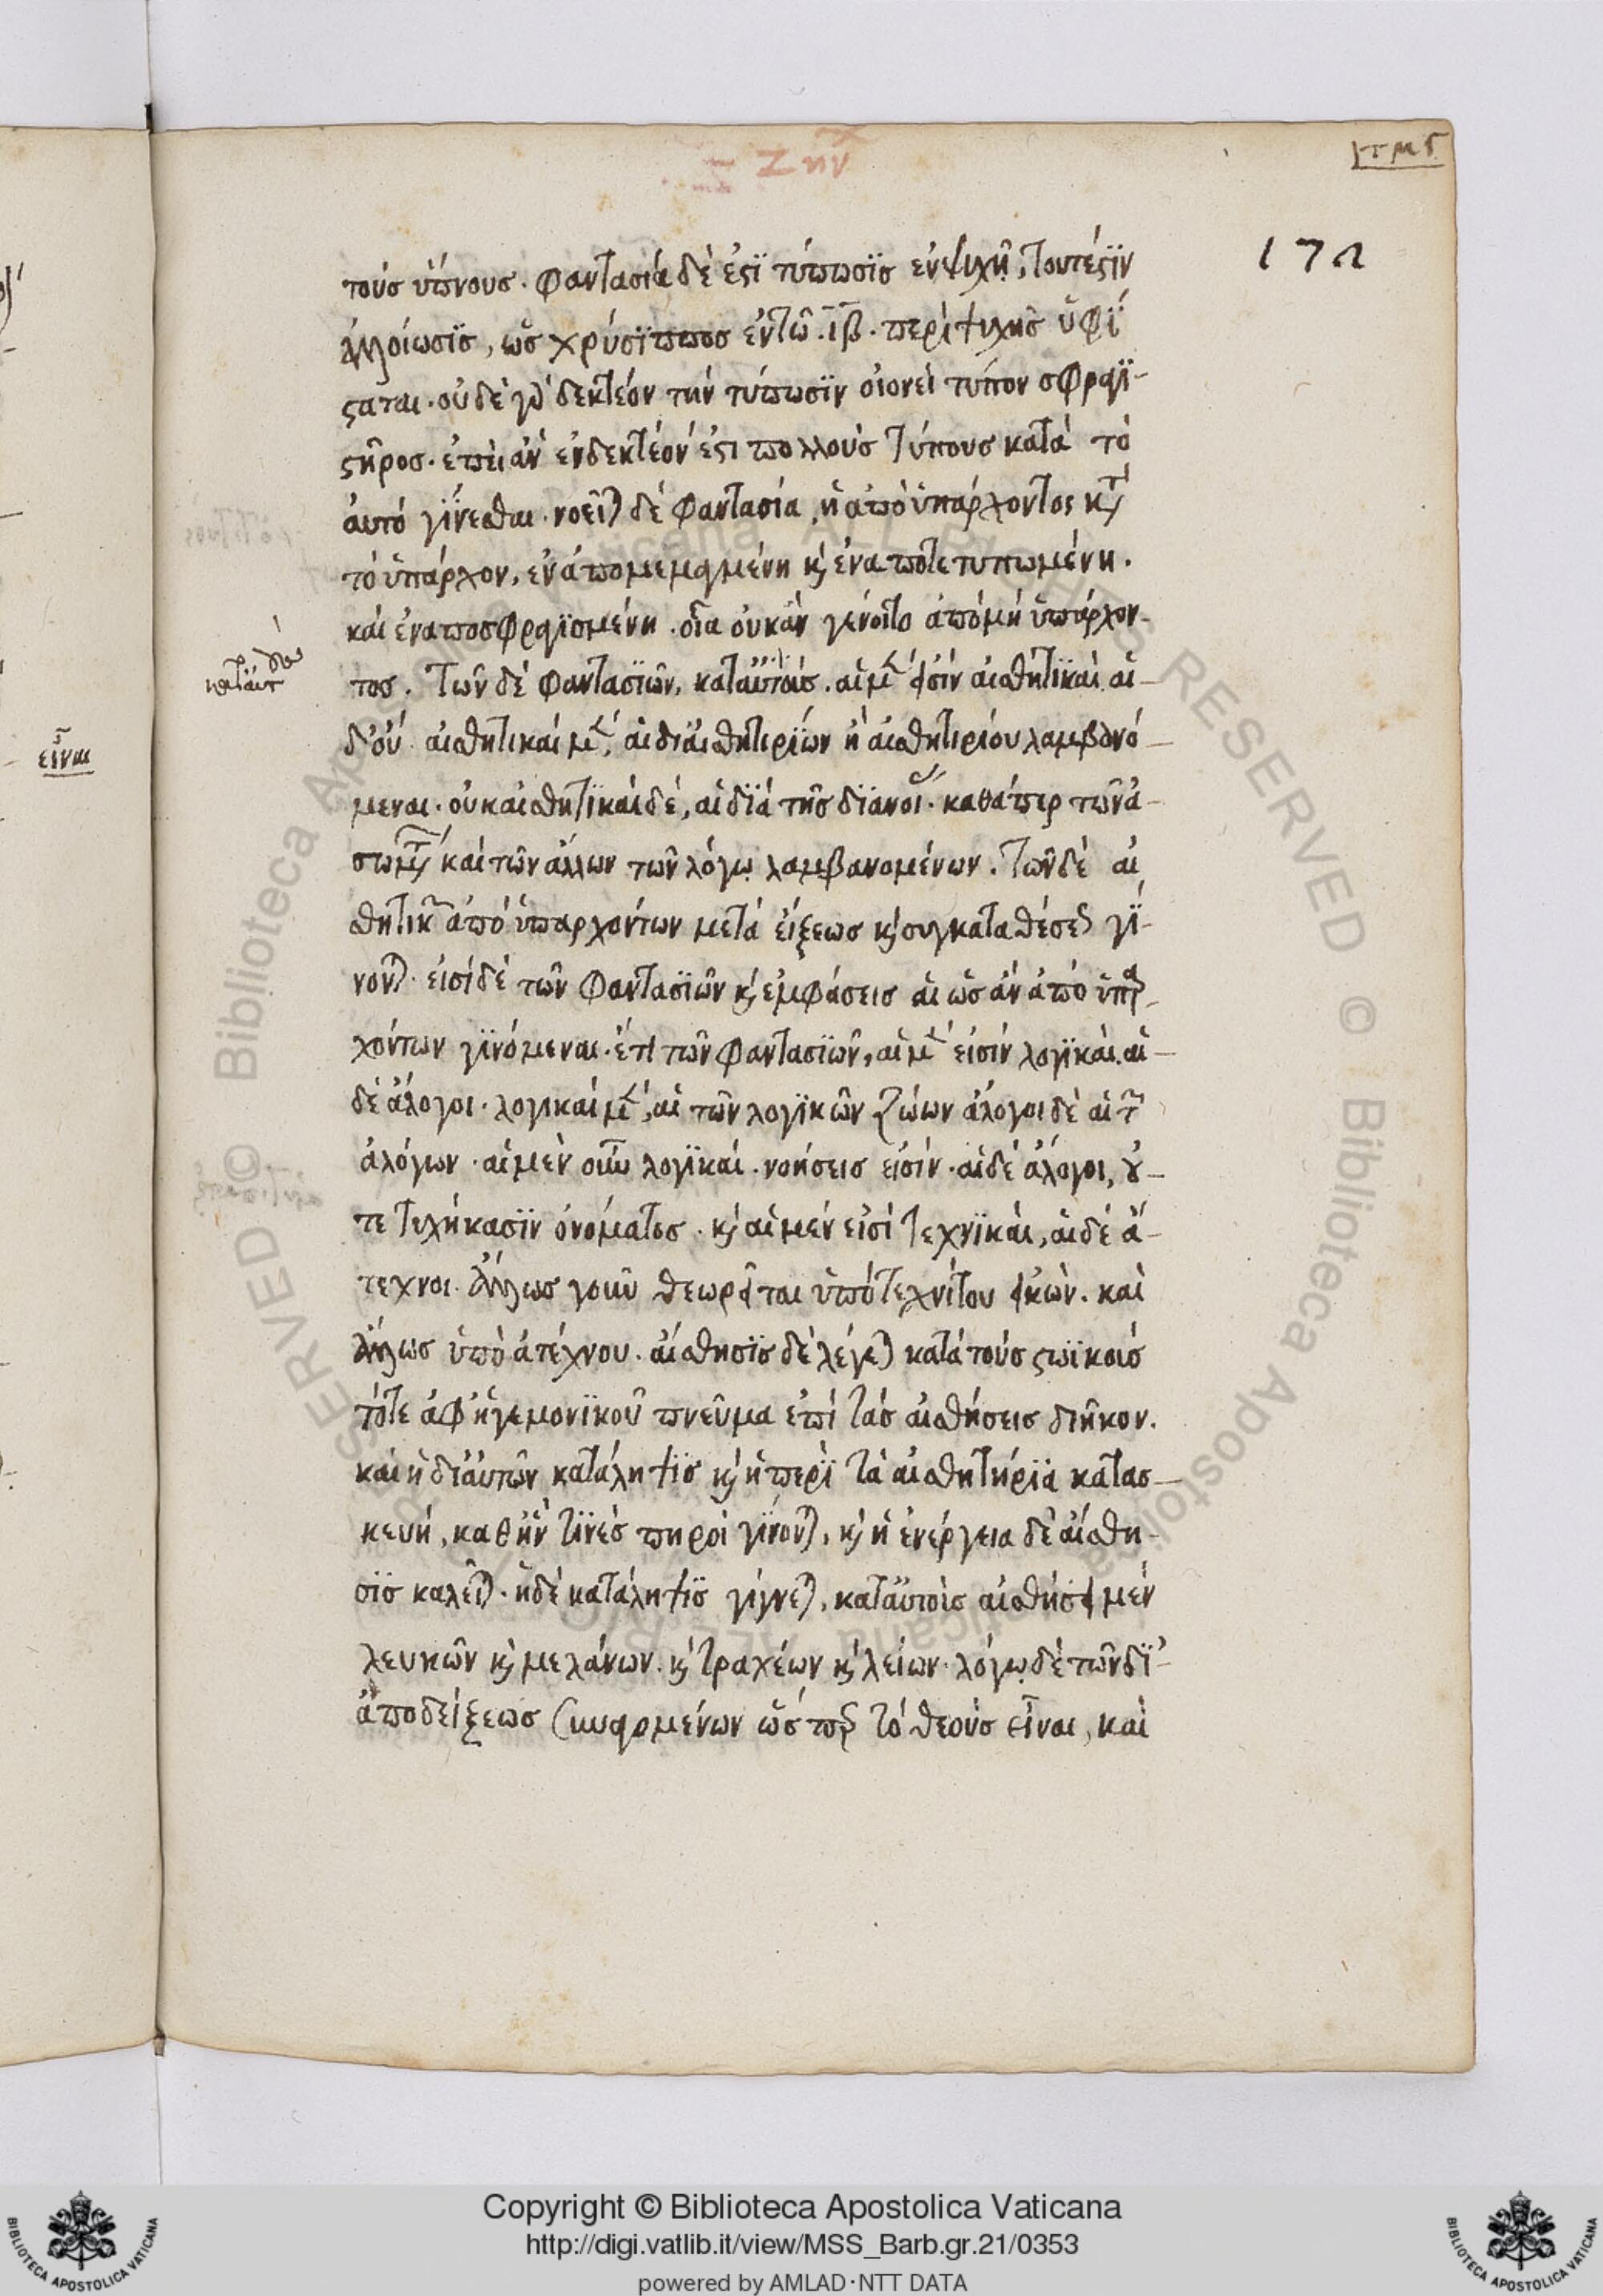 τούσ ὕπνουσ. φαντασία δέ ἐςϊ τύπωσϊσ ἐνψυχῆ, τουτέςϊν
ἀλλοίωσϊσ, ὡσ χρύσϊππος ἐντῶ. ιβ. περὶ ψυχῆσ ὑφί
ςαται. οὐδὲ γὰρ δεκτέον τὴν τύπωσϊν οἱονεὶ τύπον σφραγϊ-
ςῆροσ. ἐπεὶ ἀν ἐνδεκτέον ἐςι πολλοὺσ τύπουσ κατὰ τὸ
αυτό γίνεσθαι. νοεῖται δέ φαντασία, ἡ ἀπὸ ὑπάρχοντος κατὰ
τὸ ὑπάρχον, ἐναπομεμαγμένη κὶ ἐναποτετυπωμένη.
καὶ ἐναποσφραγϊσμένη. οἵα οὐκἂν γένοιτο ἀπὸ μὴ ὑπάρχον-
κατ αὐτοὺς
τοσ. τῶν δὲ φαντασϊῶν, κατ αὐτοὺς. αἱ μέν εἰσὶν αἰσθητϊκαὶ. αἱ-
δ' οὔ. αἰσθητικαὶ μέν, αἱ δι αἰσθητιρϊων ἢ αἰσθητιρίου λαμβανό-
μεναι. οὐκ αἰσθητϊκαὶ δέ, αἱ δϊὰ τῆσ δϊανοίας. καθάπερ τῶν ἀ-
σωμάτων καὶ τῶν ἄλλων τῶν λόγῳ λαμβανομένων. τῶν δὲ αἰ
σθητικῶν ἀπὸ ὑπαρχόντων μετὰ εἴξεωσ κὶ συγκαταθέσεως γί-
νονται. εἰσὶ δὲ τῶν φαντασϊῶν κὶ ἐμφάσεισ αἱ ὡσ ἂν ἀπὸ ὑπαρ-
χόντων γϊνόμεναι. ἔτι τῶν φαντασϊῶν, αἱ μέν εἰσὶν λογϊκαὶ. αἱ-
δὲ ἄλογοι. λογικαὶ μέν, αἱ τῶν λογϊκῶν ζώων ἄλογοι δὲ αἱ τῶν
ἀλόγων. αἱ μὲν οὖν λογϊκαί. νοήσεισ εἰσίν. αἱ δὲ ἄλογοι, οὐ-
τε τυχήκασϊν ὀνόματοσ. κὶ αἱ μέν εἰσὶ τεχνϊκαὶ, αἱ δὲ ἄ-
τεχνοι. ἄλλωσ γοῦν θεωρεῖται ὑπὸ τεχνίτου εἰκών. καὶ
ἄλλωσ ὑπὸ ἀτέχνου. αἴσθησϊσ δὲ λέγεται κατὰ τοὺσ ςωϊκοὺσ
τότε ἀφ' ἡγεμονϊκοῦ πνεῦμα ἐπὶ τὰσ αἰσθήσεισ διῆκον.
καὶ ἡ δϊ αὐτῶν κατάληψϊσ κὶ ἡ περὶ τὰ αἰσθητήρϊα κατασ-
κευή, καθ ἣν τϊνὲσ πηροὶ γίνονται, κὶ ἡ ἐνέργεια δὲ αἴσθη-
σϊσ καλεῖται. ἡ δὲ κατάληψϊσ γίγνεται, κατ αὐτοὺσ αἰσθήσει μὲν
λευκῶν κὶ μελάνων. κὶ τραχέων κὶ λείων. λόγῳ δὲ τῶν δϊ'
ἀποδείξεωσ συναγομένων ὥσπερ τὸ θεοὺσ εἶναι, καὶ
εἶναι
172
Copyright © Biblioteca Apostolica Vaticana
http://digi.vatlib.it/view/MSS_Barb.gr.21/0353
powered by AMLAD·NTT DATA
BIBLIOTECA APOSTOLICA VATICANA
BIBLIOTECA APOSTOLICA VATICANA